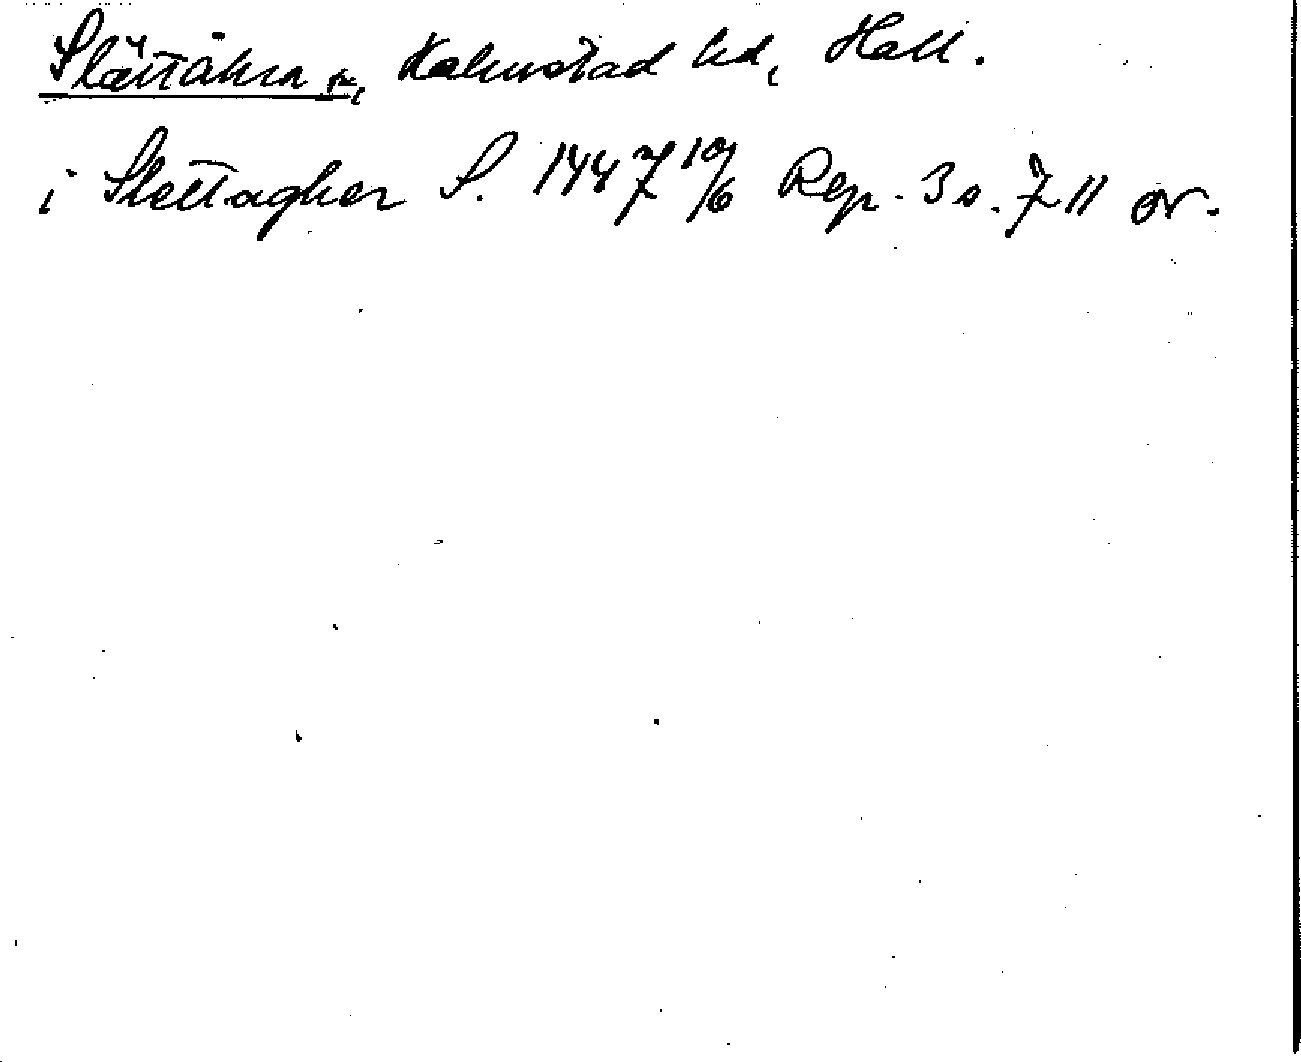 Slättåkra sn, Halmstad hd, Hall.
i Slettagher S. 1447 10/6 Rep. 3 s. 711 or.